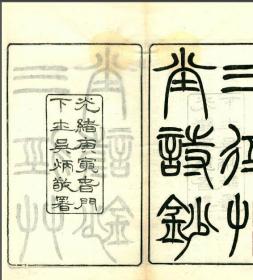 三艸
堂詩鈔
光緒庚寅春門
下士吳炳敬署